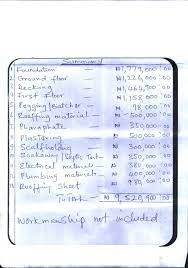 Summary
1 Foundation — ₦1,779,000:00
2 Ground floor — ₦1,226,000:00
3 Decking — ₦1,469,900:00
4 First floor — ₦1,258,000:00
5 Pegging/Batcher — ₦98,000:00
6 Rooffing material — ₦500,000:00
7 Pharaphate — ₦350,000:00
8 Plastering — ₦500,000:00
9 Scaffholding — ₦300,000:00
10 Soakaway/Septic Tank — ₦250,000:00
11 Electrical material — ₦380,000:00
12 Plumbing material — ₦400,000:00
13 Rooffing Sheet — ₦980,000:00
TOTAL — ₦9,520,900:00
Workmanship not included